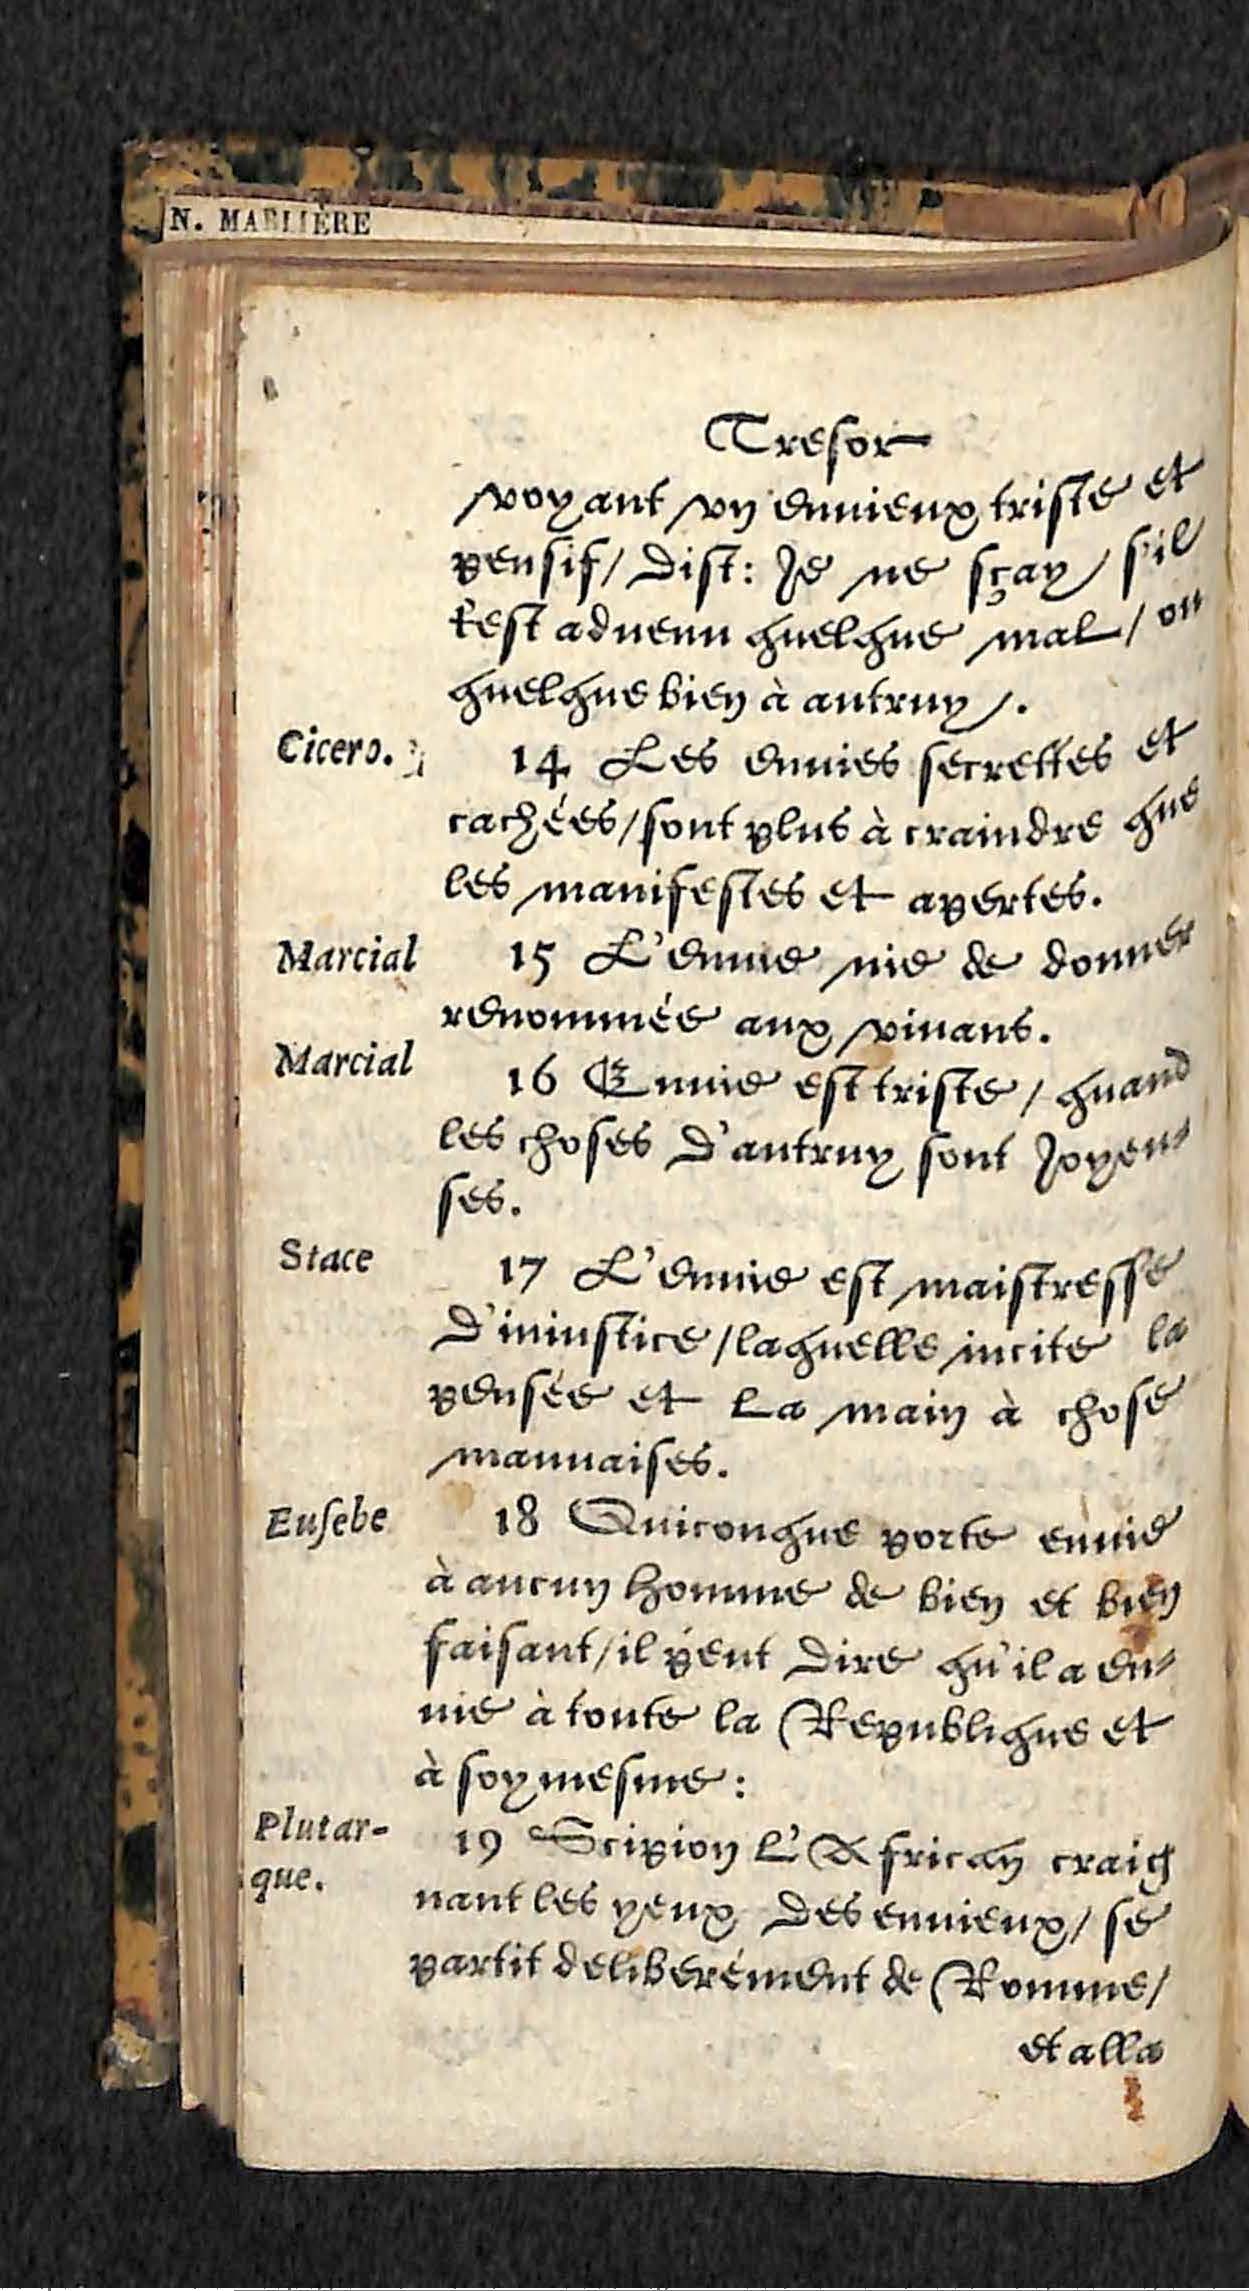 N. MARLIÈRE
Tresor
voyant vn enuieux triste et
pensif, dist: Je ne sçay, s'il
t'est aduenu quelque mal, ou
quelque bien à autruy.
Cicero.
14 Les enuies secrettes et
cachées, sont plus à craindre que
les manifestes et apertes.
Marcial
15 L'enuie nie de donner
renommée aux viuans.
Marcial
16 Enuie est triste, quand
les choses d'autruy sont Joyeu-
ses.
Stace
17 L'enuie est maistresse
d'iniustice, laquelle incite la
pensée et la main à chose
mauuaises.
Eusebe
18 Quiconque porte enuie
à aucun homme de bien et bien
faisant, il peut dire qu'il a en-
uie à toute la Republique et
à soymesme:
Plutar-
que.
19 Scipion l'African craig
nant les yeux des enuieux, se
partit deliberément de Romme,
et alla